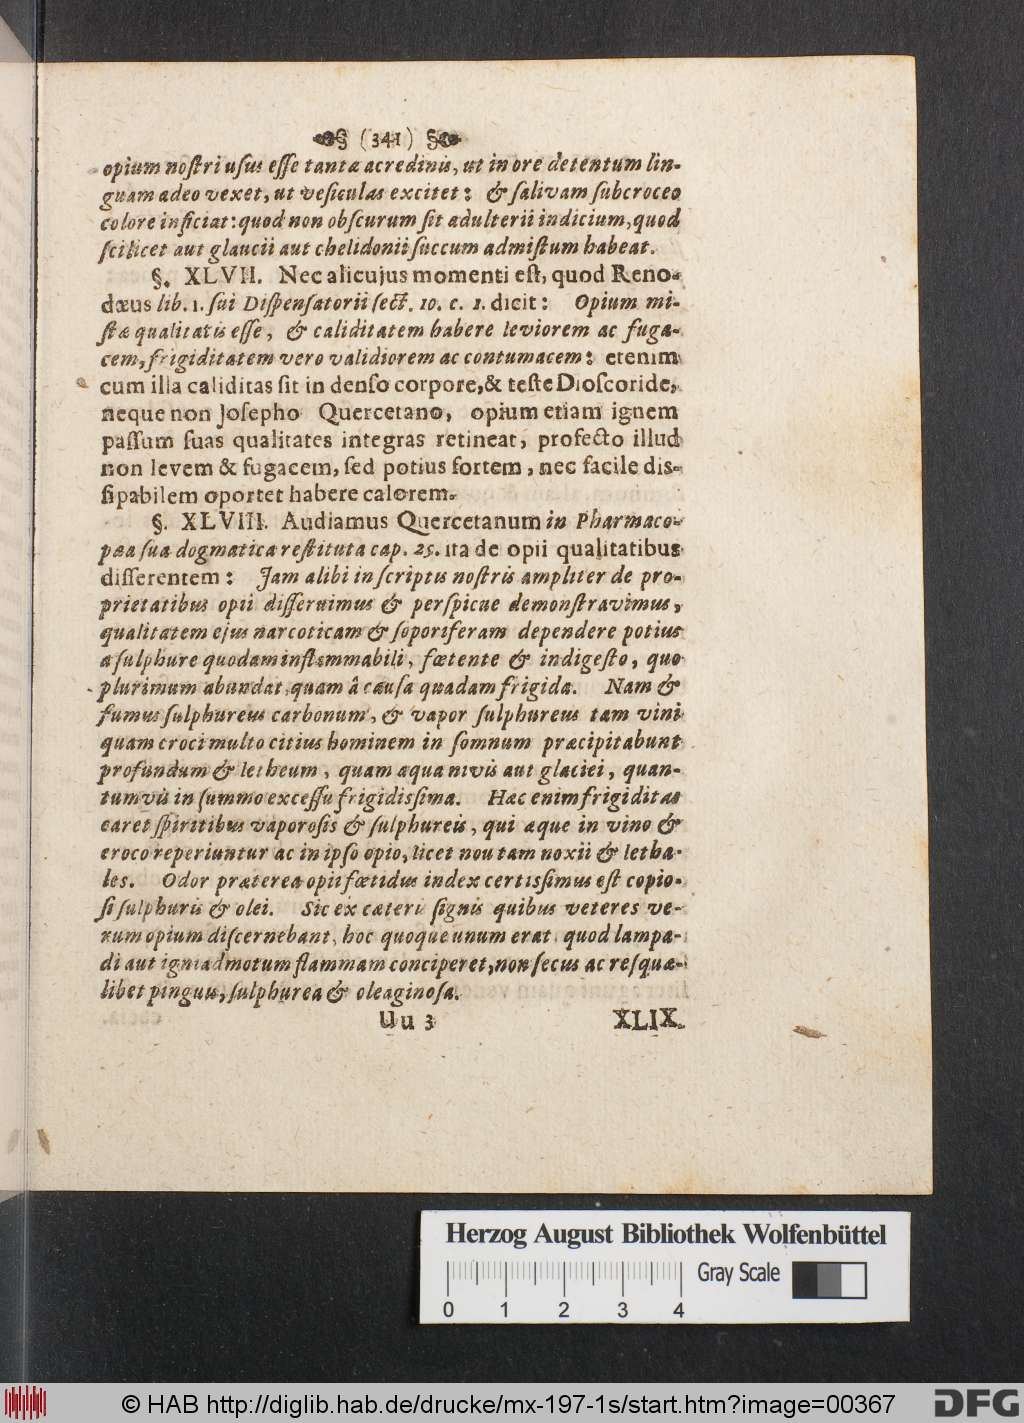 (341)
opium noſtri uſus eſſe tantæ acredinis, ut in ore detentum lin-
guam adeo vexet, ut veſiculas excitet: & ſalivam ſubcroceo
colore inficiat: quod non obſcurum ſit adulterii indicium, quod
ſcilicet aut glaucii aut chelidonii ſuccum admiſtum habeat.
§. XLVII. Nec alicujus momenti eſt, quod Reno-
dæus lib. 1. ſui Diſpenſatorii ſect. 10. c. 1. dicit: Opium mi-
ſtæ qualitatis eſſe, & caliditatem habere leviorem ac fuga-
cem, frigiditatem vero validiorem ac contumacem: etenim
cum illa caliditas ſit in denſo corpore, & teſte Dioſcoride,
neque non Joſepho Quercetano, opium etiam ignem
paſſum ſuas qualitates integras retineat, profecto illud
non levem & fugacem, ſed potius fortem, nec facile diſ-
ſipabilem oportet habere calorem.
§. XLVIII. Audiamus Quercetanum in Pharmaco-
pæa ſua dogmatica reſtituta cap. 25. ita de opii qualitatibus
diſſerentem: Jam alibi in ſcriptis noſtris ampliter de pro-
prietatibus opii diſſeruimus & perſpicue demonſtravimus,
qualitatem ejus narcoticam & ſoporiferam dependere potius
a ſulphure quodam inflammabili, fœtente & indigeſto, quo
plurimum abundat, quam â cauſa quadam frigida. Nam &
fumus ſulphureus carbonum, & vapor ſulphureus tam vini
quam croci multo citius hominem in ſomnum præcipitabunt
profundum & letheum, quam aqua nivis aut glaciei, quan-
tumvis in ſummo exceſſu frigidiſsima. Hæc enim frigiditas
caret ſpiritibus vaporoſis & ſulphureis, qui æque in vino &
croco reperiuntur ac in ipſo opio, licet non tam noxii & letha-
les. Odor præterea opii fœtidus index certiſsimus eſt copio-
ſi ſulphuris & olei. Sic ex cæteris ſignis quibus veteres ve-
rum opium diſcernebant, hoc quoque unum erat, quod lampa-
di aut igni admotum flammam conciperet, non ſecus ac res quæ-
libet pinguis, ſulphurea & oleaginoſa.
Uu 3 XLIX.
Herzog August Bibliothek Wolfenbüttel
Gray Scale
0 1 2 3 4
© HAB http://diglib.hab.de/drucke/mx-197-1s/start.htm?image=00367
DFG